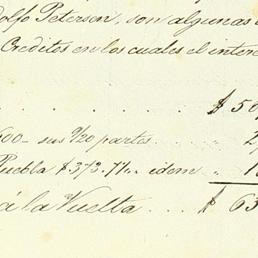 dolfo Peterson, son algunas
Creditos en los cuales el inter
. . . . . . $ 50
600 - sus 9/20 partes . . . . 2
Puebla $ 373.77.. idem ..
á la Vuelta . . . $ 63